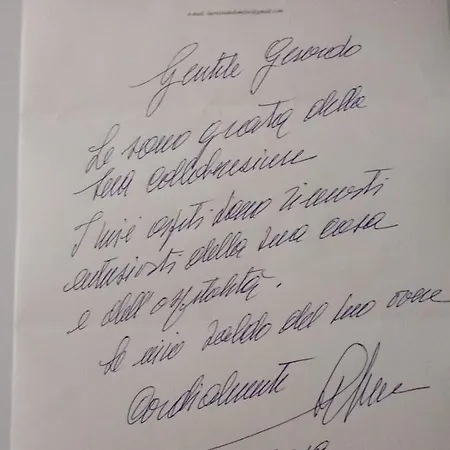 Gentile Gerardo
Le sono grata della
sua collaborazione
I miei ospiti sono rimasti
entusiasti della sua casa
e dell'ospitalità.
Le invio saldo del suo
Cordialmente